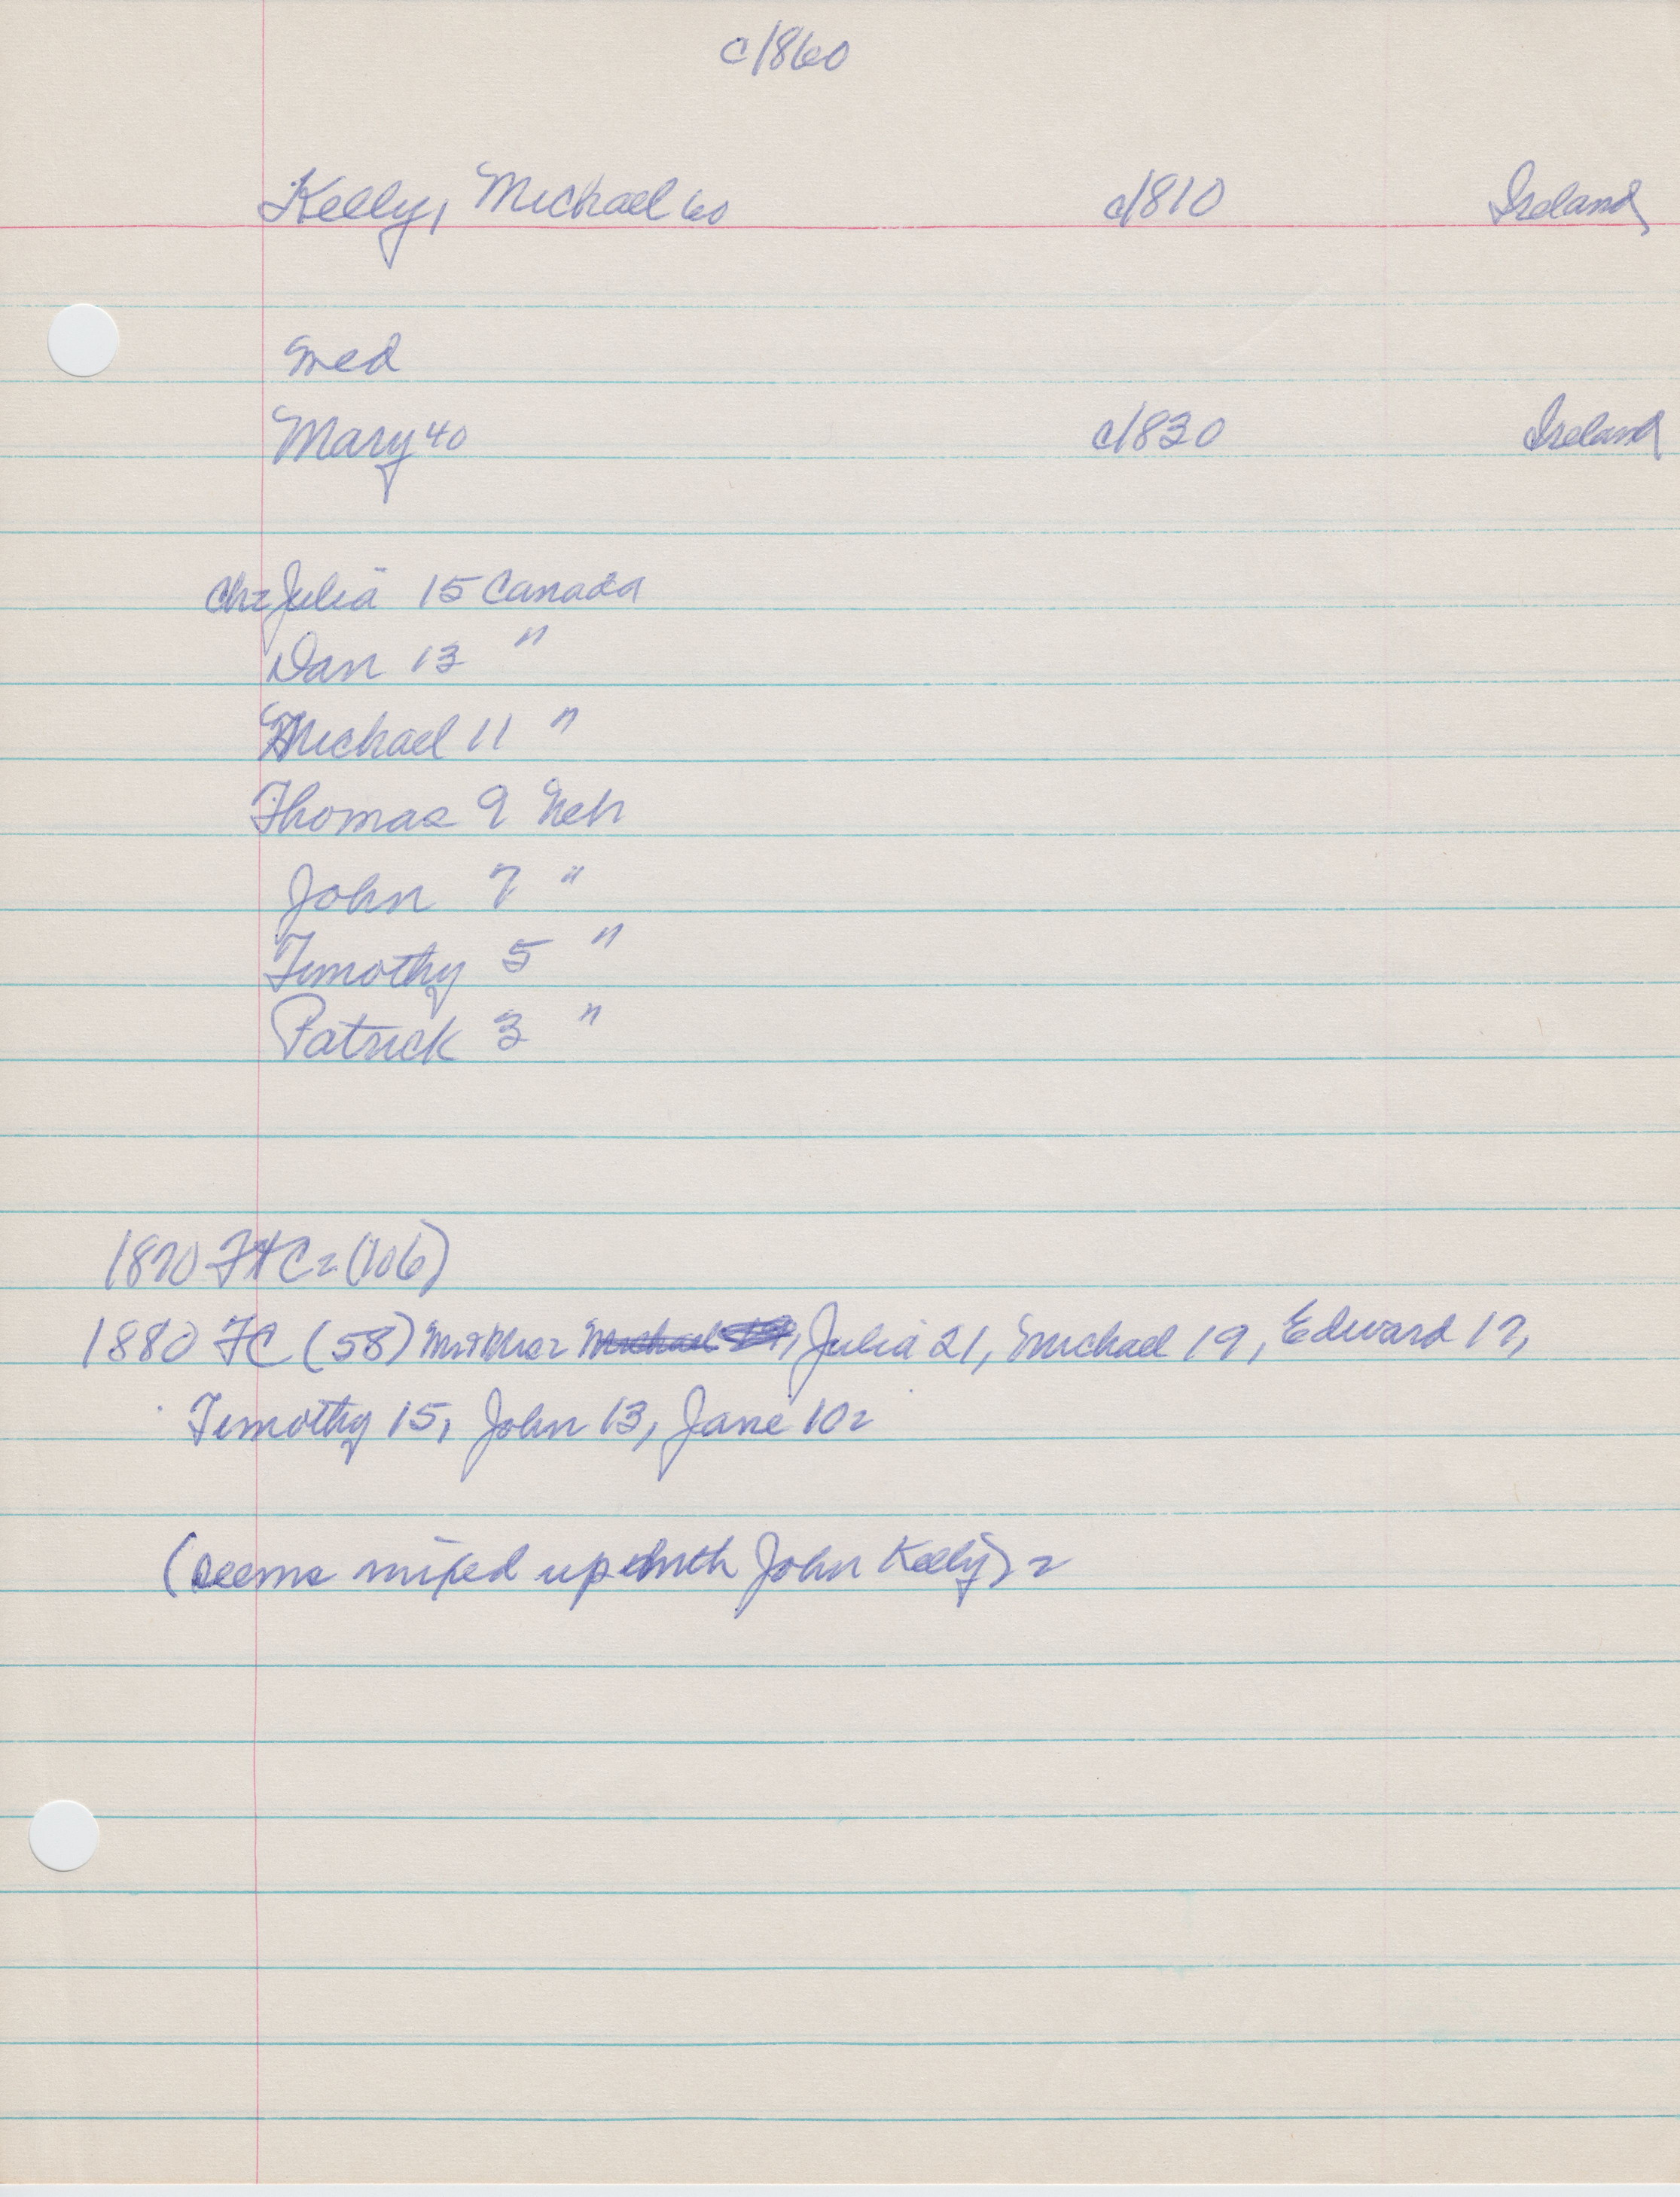 c1860
Kelly, Michael 60 c1810 Ireland
med
Mary 40 c1830 Ireland
Ch= Julia 15 Canada
Dan 13 "
Michael 11 "
Thomas 9 Neb
John 7 "
Timothy 5 "
Patrick 3 "
1870 FHC= (106)
1880 FC (58) Julia 21, Michael 19, Edward 17,
Timothy 15, John 13, Jane 10=
(seems mixed up with John Kelly)=